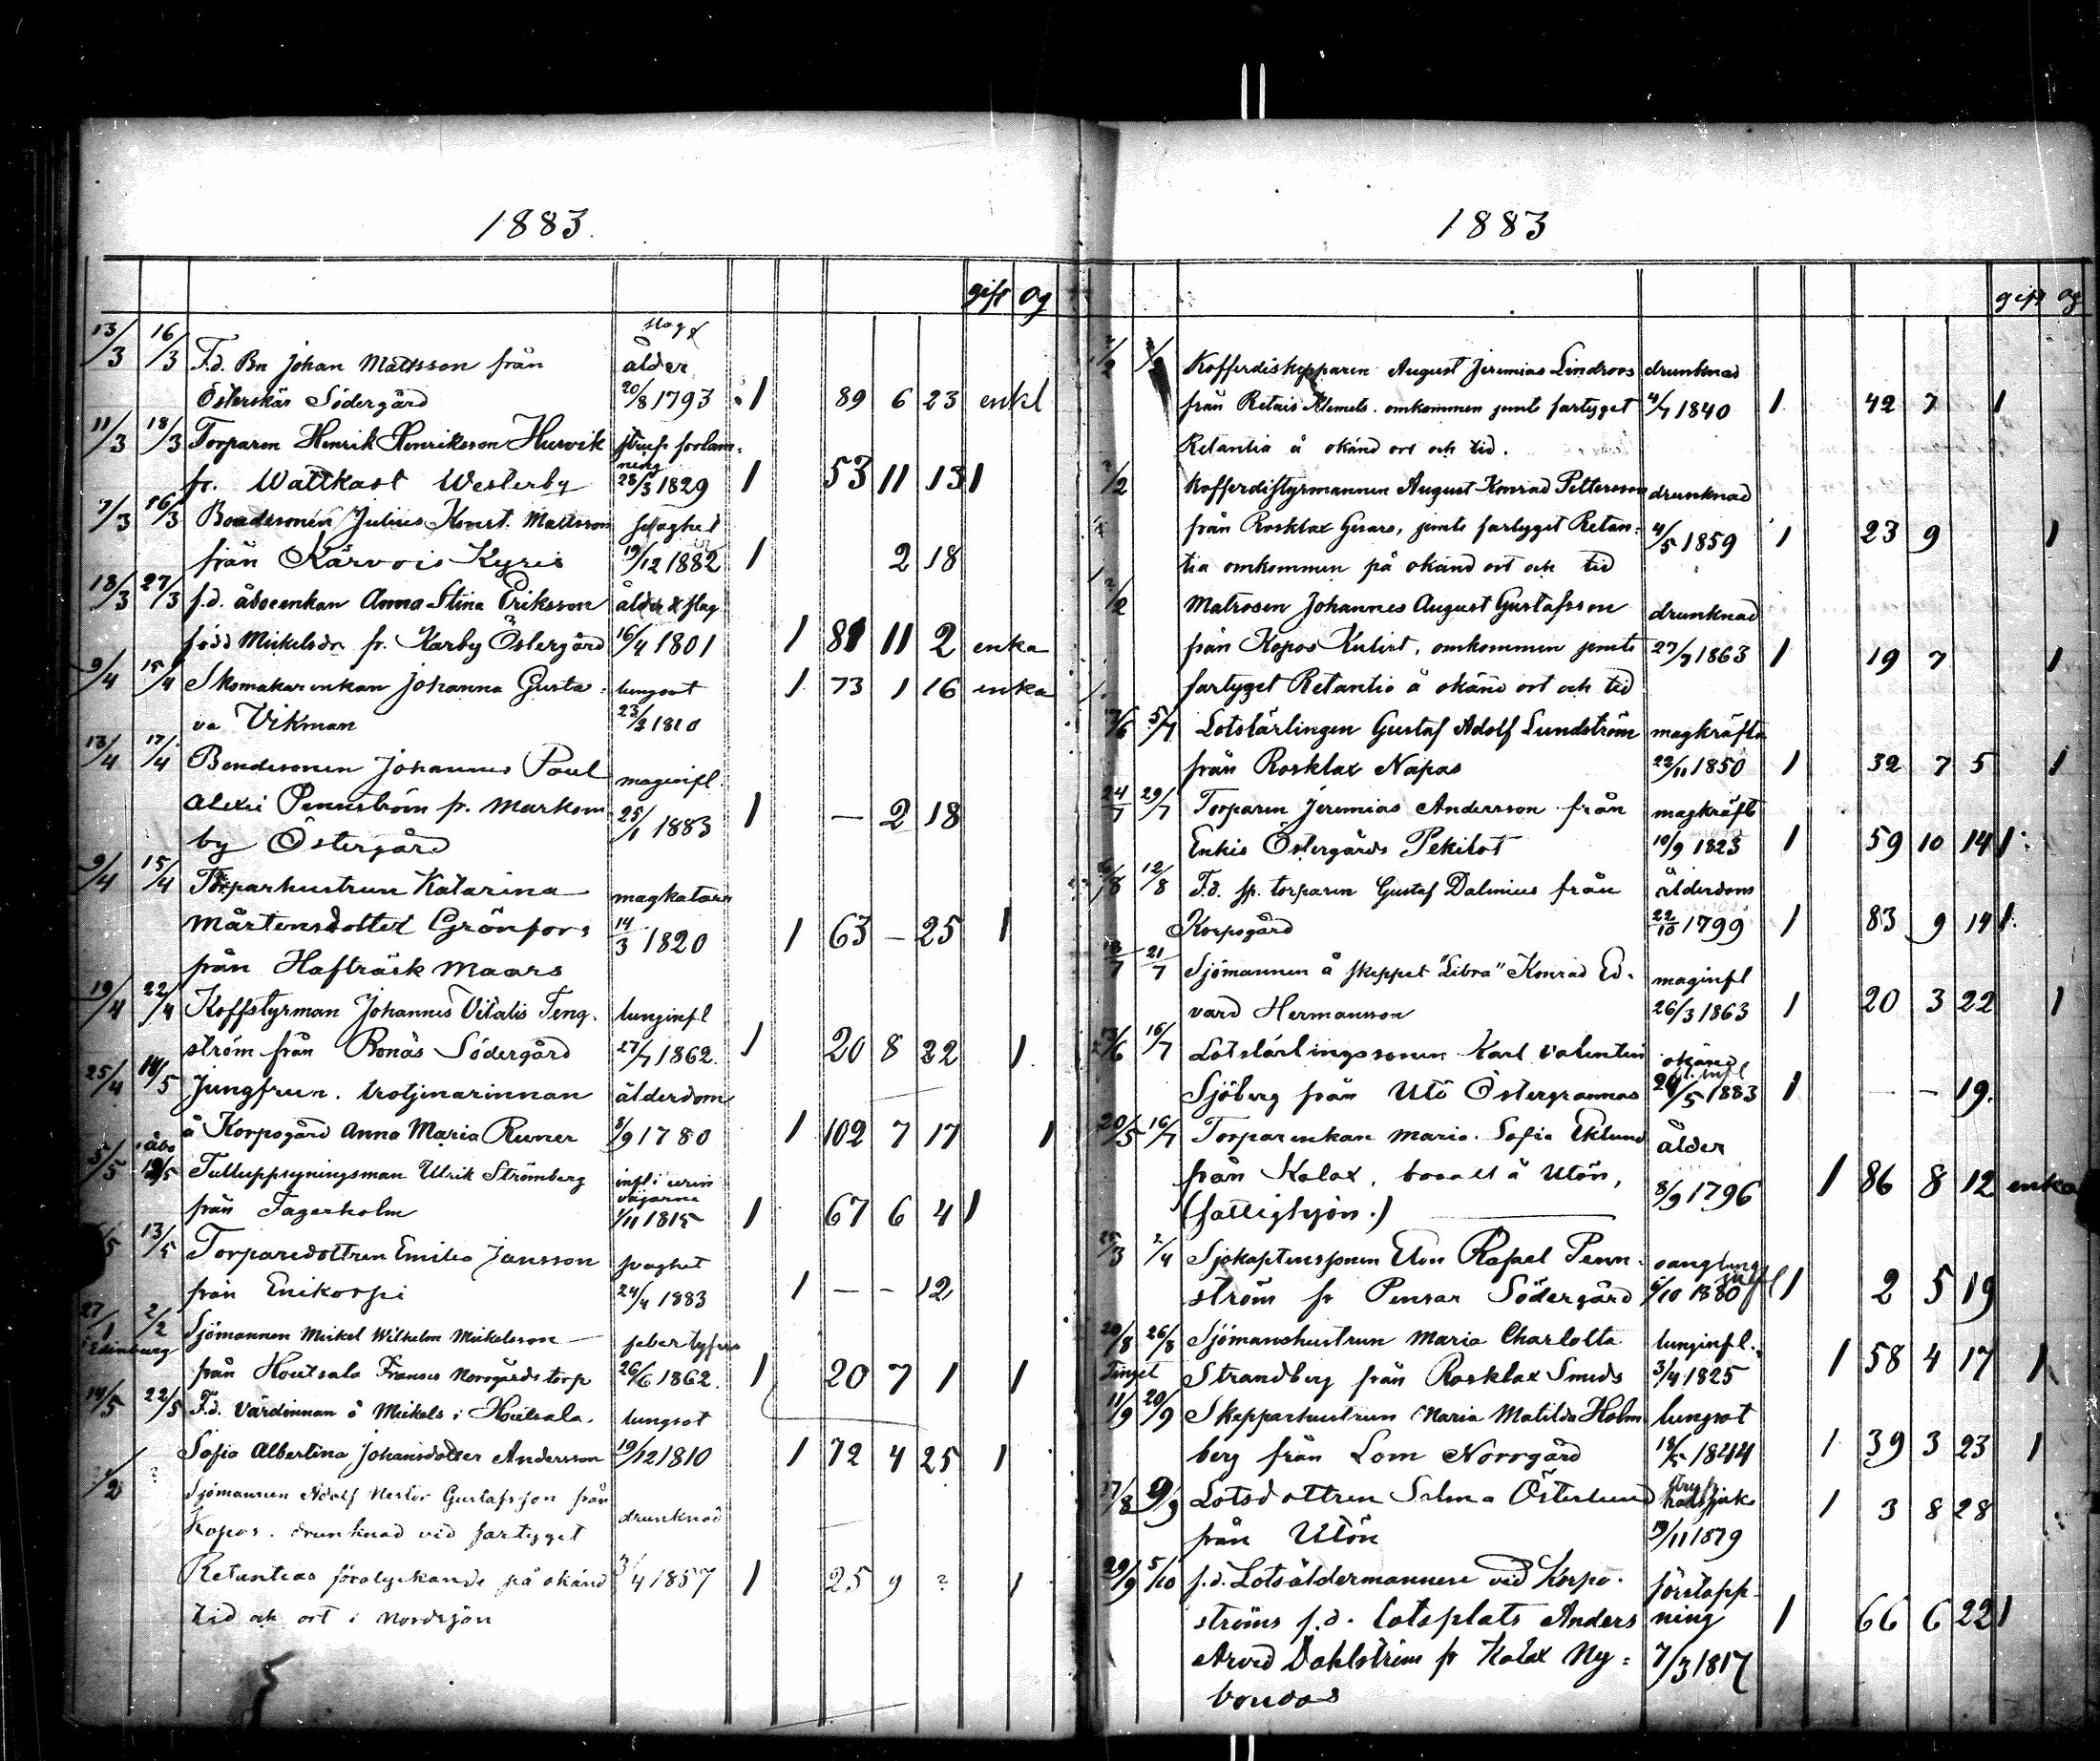 1883.
gift og
13/3 16/3 F.d. Bn Johan Mattsson från slag &
ålder
Österskär Södergård 20/8 1793 1 89 6 23 enkl
11/3 18/3 Torparen Henrik Henriksson Hurvik
ning
fr. Wattkast Westerby 28/3 1829 1 53 11 13 1
7/3 26/3 Bondesonen Julius Konst. Mattsson svaghet
från Kärvois Kyris 19/12 1882 1 2 18
18/3 27/3 f.d. åboenkan Anna Stina Eriksson ålder & slag
född Mickelsdr fr. Karby Östergård 16/4 1801 1 81 11 2 enka
9/4 15/4 Skomakarenkan Johanna Gusta- lungsot 1 73 1 16 enka
va Vikman 23/2 1810
13/4 17/4 Bondesonen Johannes Paul maginfl.
Alexii Pennström fr. Markom- 25/1 1883 1 — 2 18
by Östergård
9/4 15/4 Torparhustrun Katarina magkatarr
Mårtensdotter Grönfors 14/3 1820 1 63 — 25 1
från Hafträsk Maars
19/4 22/4 Koffstyrman Johannes Vitalis Teng- lunginfl
ström från Bonäs Södergård 27/7 1862. 1 20 8 22 1
25/4 14/5 Jungfrun, trotjenarinnan ålderdom
å Korpogård Anna Maria Runer 8/9 1780 1 102 7 17 1
5/5 åbo 12/5 Tulluppsyningsman Ulrik Strömberg infl i urin
vägarne
från Fagerholm 1/11 1815 1 67 6 4 1
/5 13/5 Torparedottren Emilia Jansson svaghet
från Enikorpi 24/4 1883 1 — — 12
27/1 2/2 Sjömannen Mickel Wilhelm Mickelsson feber tyfus
i Edinburg
från Houtsala Franses Norrgårds torp 26/6 1862. 1 20 7 1 1
14/5 22/5 F.d. Värdinnan å Mickels i Hutsala. lungsot
Sofia Albertina Johansdotter Andersson 19/12 1810 1 72 4 25 1
?/2 ? Sjömannen Adolf Nestor Gustafsson från
Kopos. drunknad vid fartyget drunknad
Retantias förolyckande på okänd 3/4 1857 1 25 9 ? 1
tid och ort i Nordsjön
1883
gift og
?/2 Kofferdiskepparen August Jeremias Lindroos drunknad
från Retais Klemets. omkommen jemte fartyget 4/7 1840 1 42 7 1
Retantia å okänd ort och tid.
?/2 Kofferdistyrmannen August Konrad Pettersson drunknad
från Rosklax Gesars, jemte fartyget Retan- 4/5 1859 1 23 9 1
tia omkommen på okänd ort och tid
?/2 Matrosen Johannes August Gustafsson drunknad
från Kopos Kulirt, omkommen jemte 27/7 1863 1 19 7 1
fartyget Retantia å okänd ort och tid
5/7 Lotslärlingen Gustaf Adolf Lundström magkräfta
från Rosklax Napas 22/11 1850 1 32 7 5 1
24/7 29/7 Torparen Jeremias Andersson från magkräft
Enkis Östergårds Pekilot 10/9 1823 1 59 10 14 1
/8 12/8 F.d. sp. torparen Gustaf Dalinius från ålderdom
Korpogård 22/10 1799 1 83 9 14 1
18/7 21/7 Sjömannen å skeppet "Libra" Konrad Ed- maginfl
vard Hermansson 26/3 1863 1 20 3 22 1
/6 16/7 Lotslärlingssonen Karl Valentin okänd
Sjöberg från Utö Östergrannas /5 1883 1 — — 19.
20/5 16/7 Torparenkan Maria Sofia Eklund ålder
från Kalax, bosatt å Utön, 8/9 1796 1 86 8 12 enka
(fattighjon.)
25/3 2/4 Sjökaptenssonen Uno Rafael Penn-
ström fr Pensar Södergård 6/10 1880 1 2 5 19
20/8 26/8 Sjömanshustrun Maria Charlotta lunginfl.
Strandberg från Rosklax Smeds 3/4 1825 1 58 4 17 1
11/9 20/9 Skepparhustrun Maria Matilda Holm- lungsot
berg från Lom Norrgård 18/5 1844 1 39 3 23 1
17/8 9/9 Lotsdottren Selma Österlund
från Utön 19/11 1879 1 3 8 28
29/9 5/10 f.d. Lotsåldermannen vid Korpo- förstopp-
ströms f.d. lotsplats Anders ning 1 66 6 22 1
Arvid Dahlström fr Kalax Ny- 7/3 1817
bondas